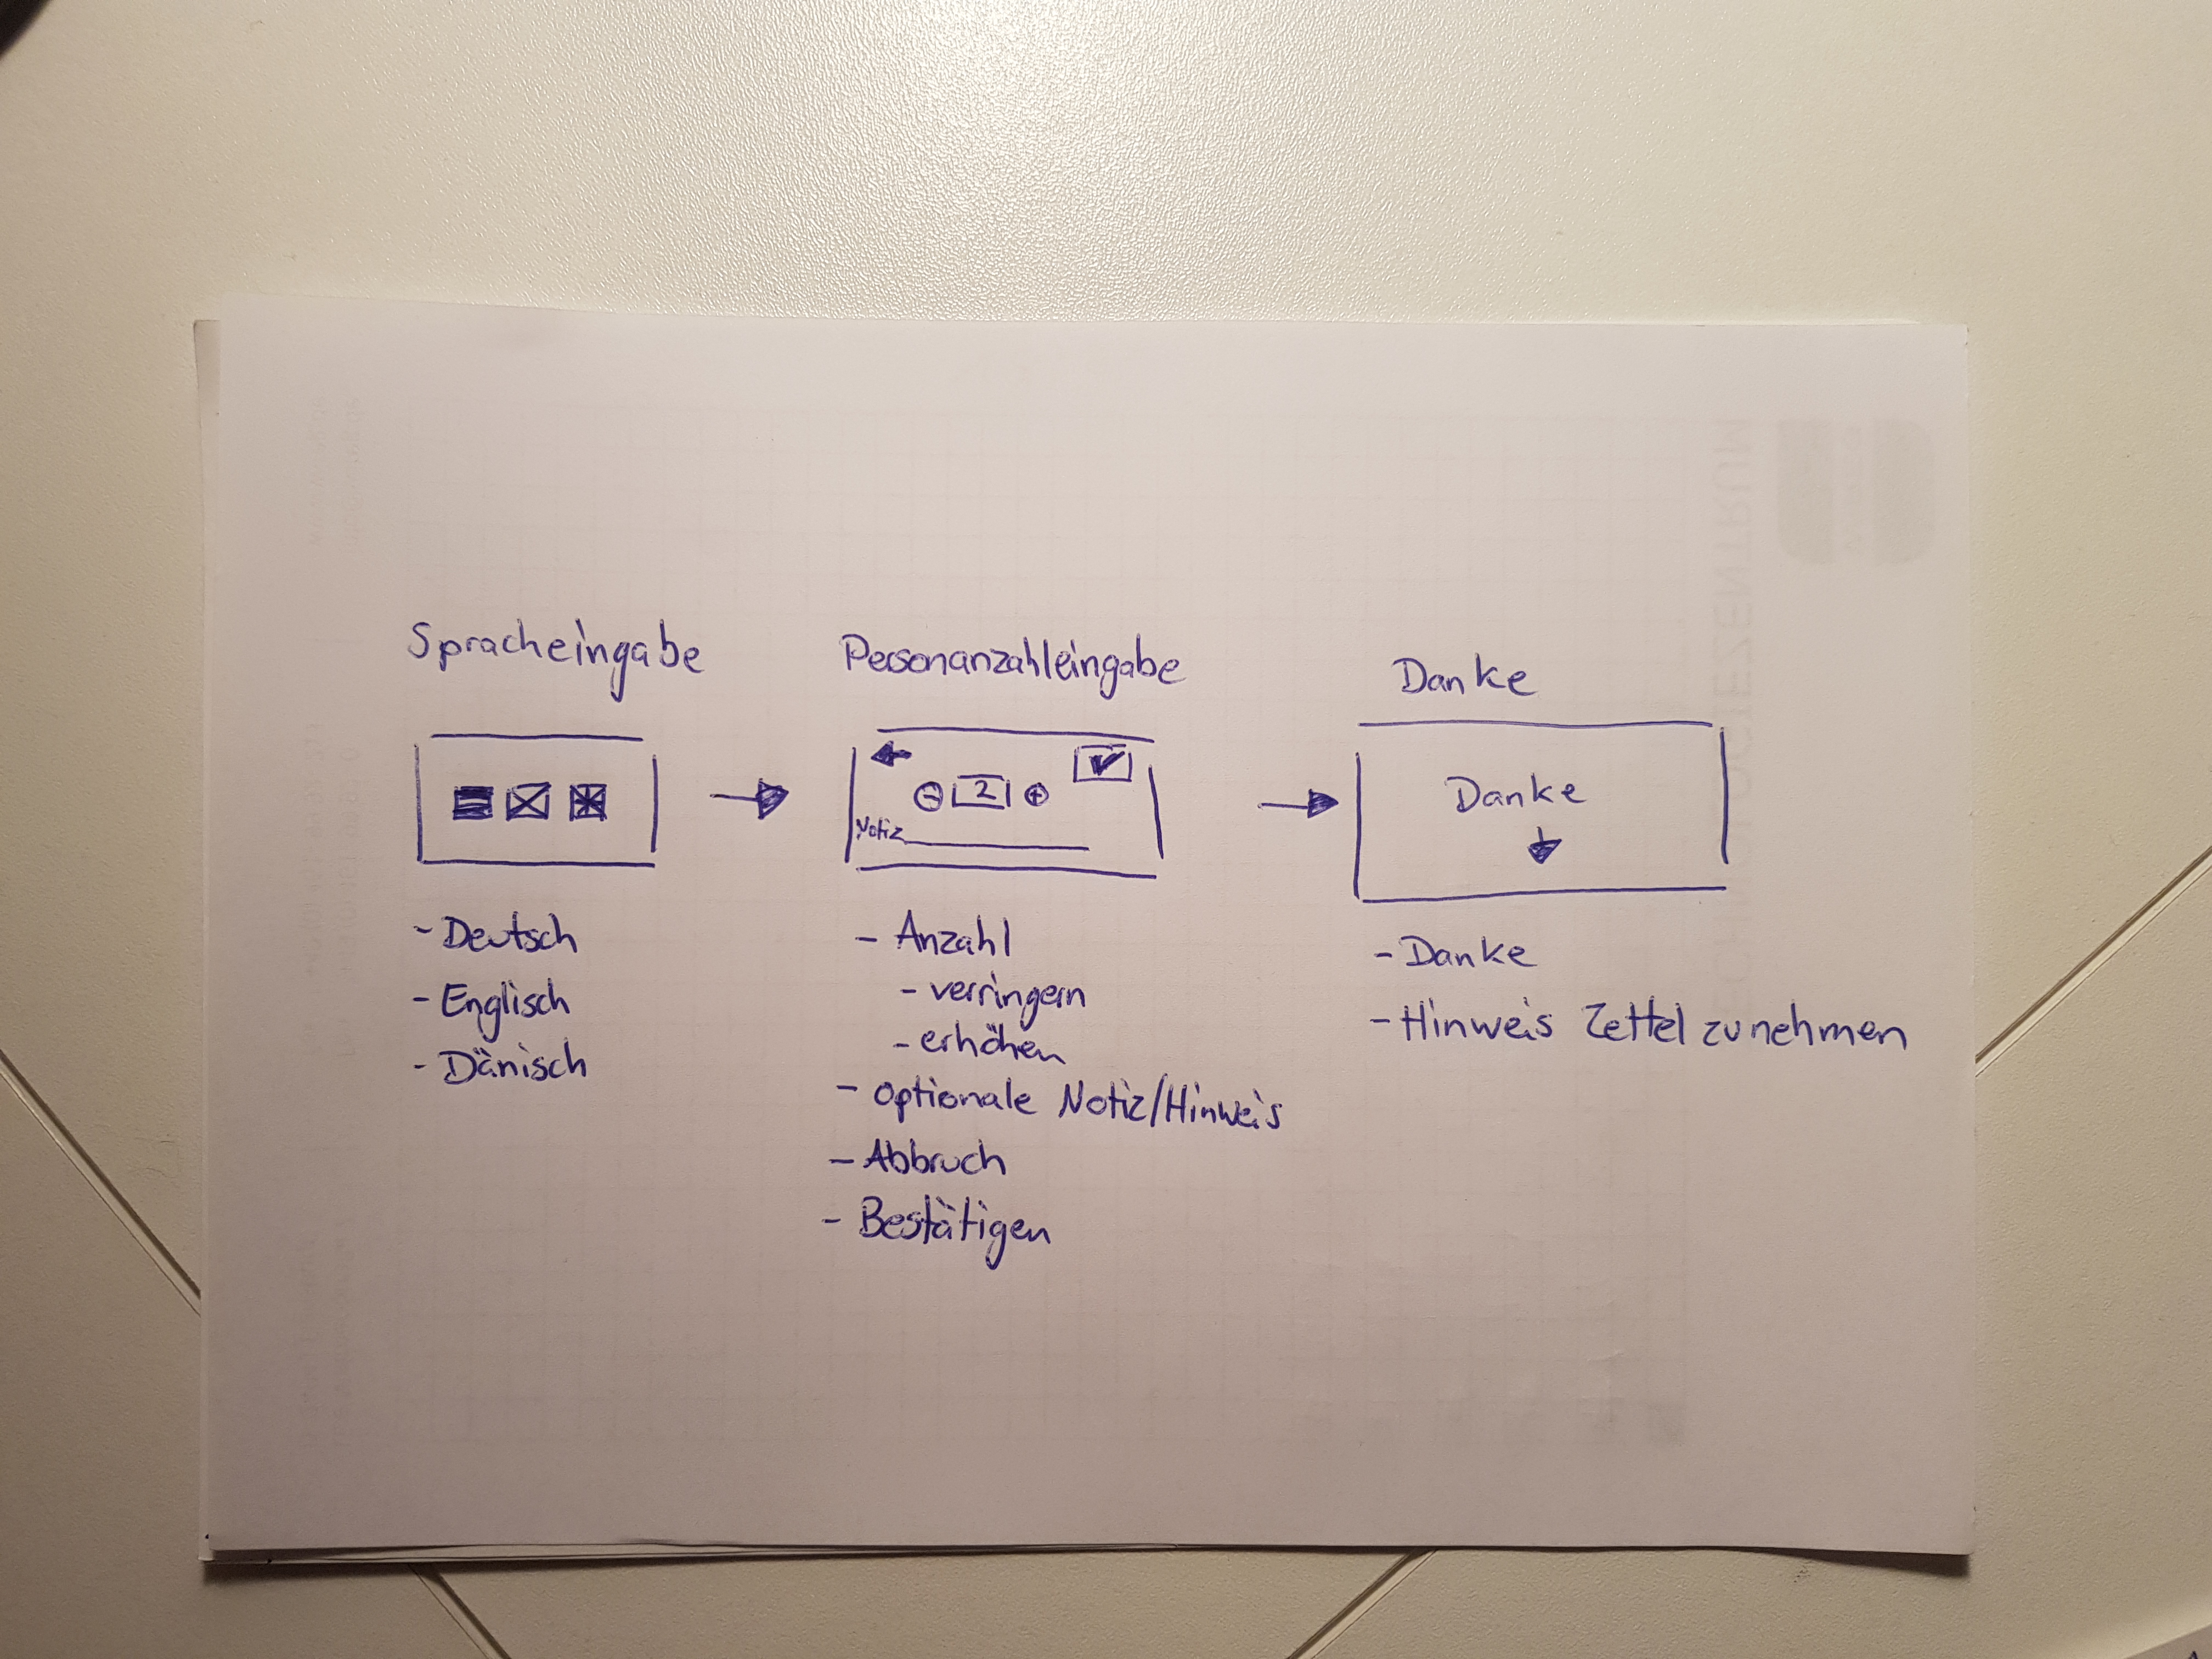 Spracheingabe
- Deutsch
- Englisch
- Dänisch
Personanzahleingabe
2
Notiz
- Anzahl
- verringern
- erhöhen
- optionale Notiz/Hinweis
- Abbruch
- Bestätigen
Danke
Danke
- Danke
- Hinweis Zettel zu nehmen